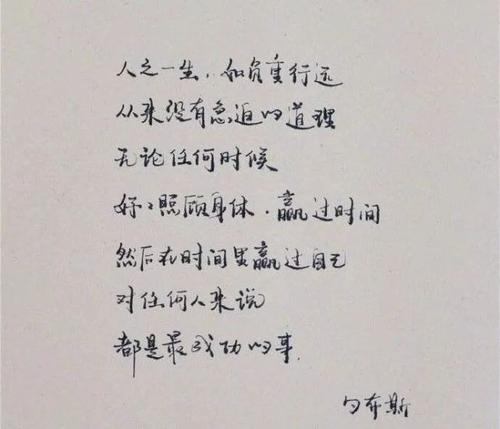 人之一生，如负重行远
从来没有急迫的道理
无论任何时候
好好照顾身体．赢过时间
然后在时间里赢过自己
对任何人来说
都是最成功的事.
勺布斯